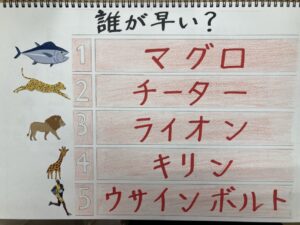 誰が早い?
1 マグロ
2 チーター
3 ライオン
4 キリン
5 ウサインボルト